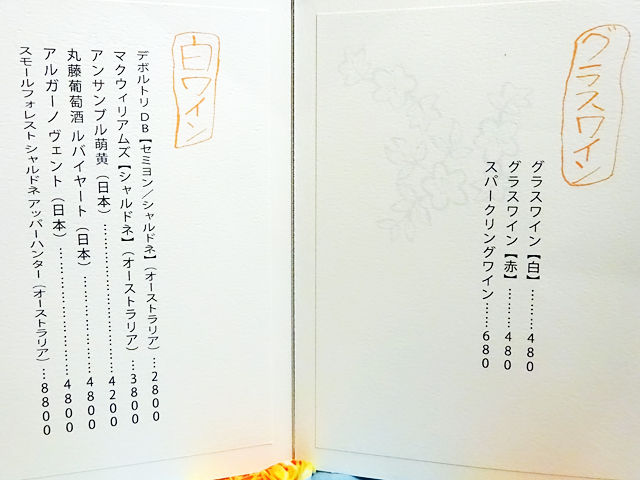 グラスワイン
グラスワイン【白】………480
グラスワイン【赤】………480
スパークリングワイン……680
白ワイン
デボルトリ DB【セミヨン／シャルドネ】（オーストラリア）…2800
マクウィリアムズ【シャルドネ】（オーストラリア）…3800
アンサンブル萌黄（日本）………………………4200
丸藤葡萄酒 ルバイヤート（日本）………………4800
アルガーノ ヴェント（日本）……………………4800
スモールフォレスト シャルドネ アッパーハンター（オーストラリア）…8800